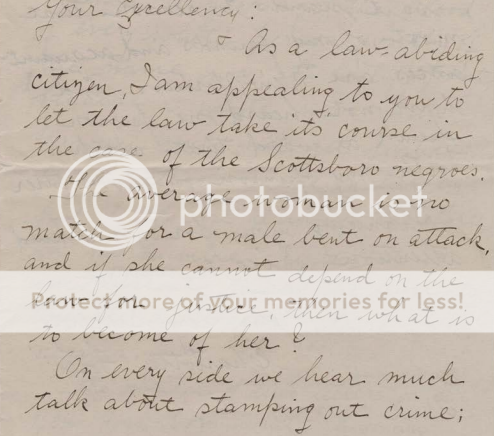 Your Excellency:
As a law-abiding
citizen, I am appealing to you to
let the law take its course in
the case of the Scottsboro negroes.
The average woman is no
match for a male bent on attack,
and if she cannot depend on the
law for justice, then what is
to become of her?
On every side we hear much
talk about stamping out crime;
photobucket
Protect more of your memories for less!